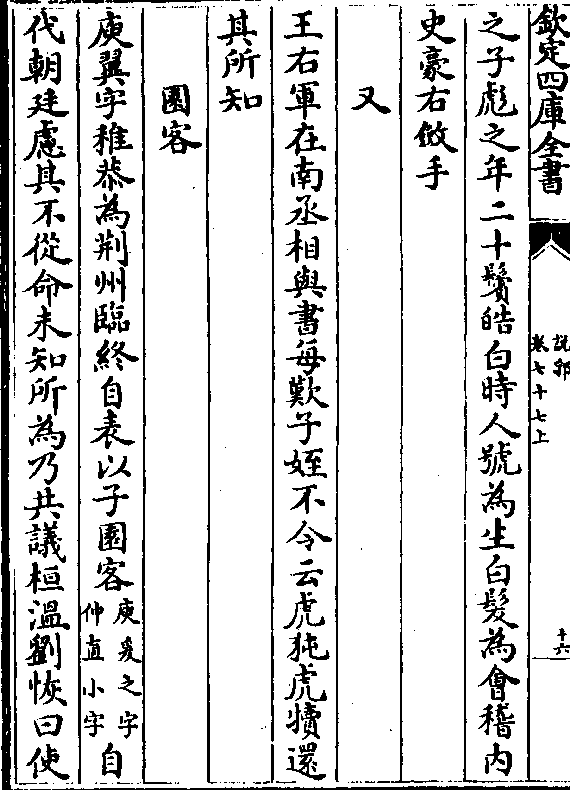 欽定四庫全書
說郛
卷七十七上
十六
之子彪之年二十鬢皓白時人號為生白髮為會稽内
史豪右斂手
又
王右軍在南丞相與書每歎子姪不令云虎㹠虎犢還
其所知
園客
庾翼字稚恭為荆州臨終自表以子園客庾爰之字仲直小字自
代朝廷慮其不從命未知所為乃共議桓溫劉恢曰使